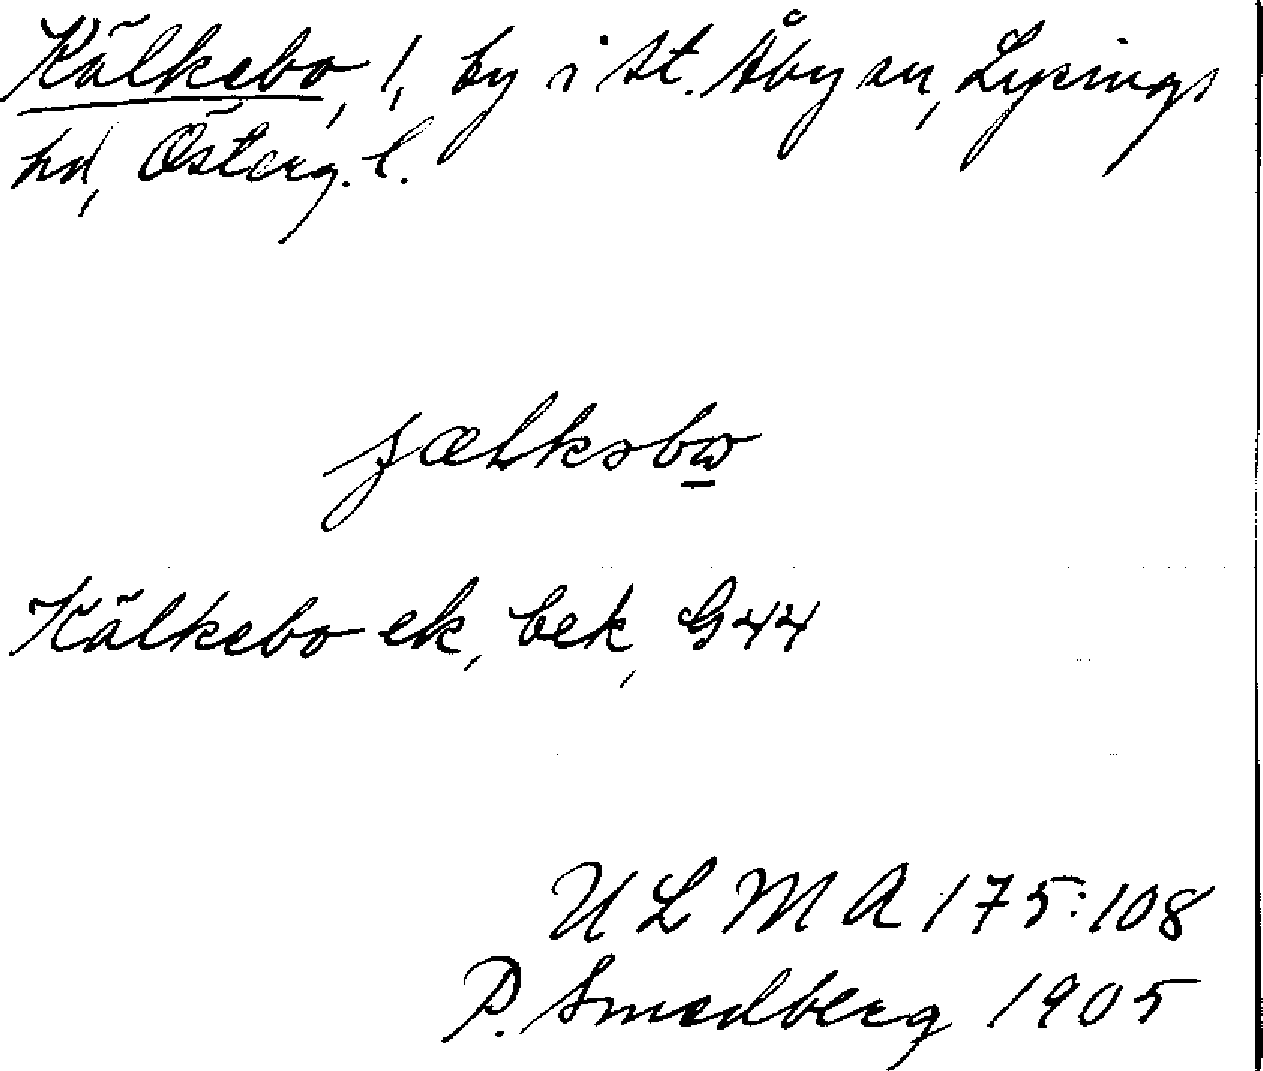 Kälkebo, 1, by i St. Åby sn, Lysings
hd, Österg. l.
Kälkebo ek, bek, G44
ULMA 175:108
P. Smedberg 1905